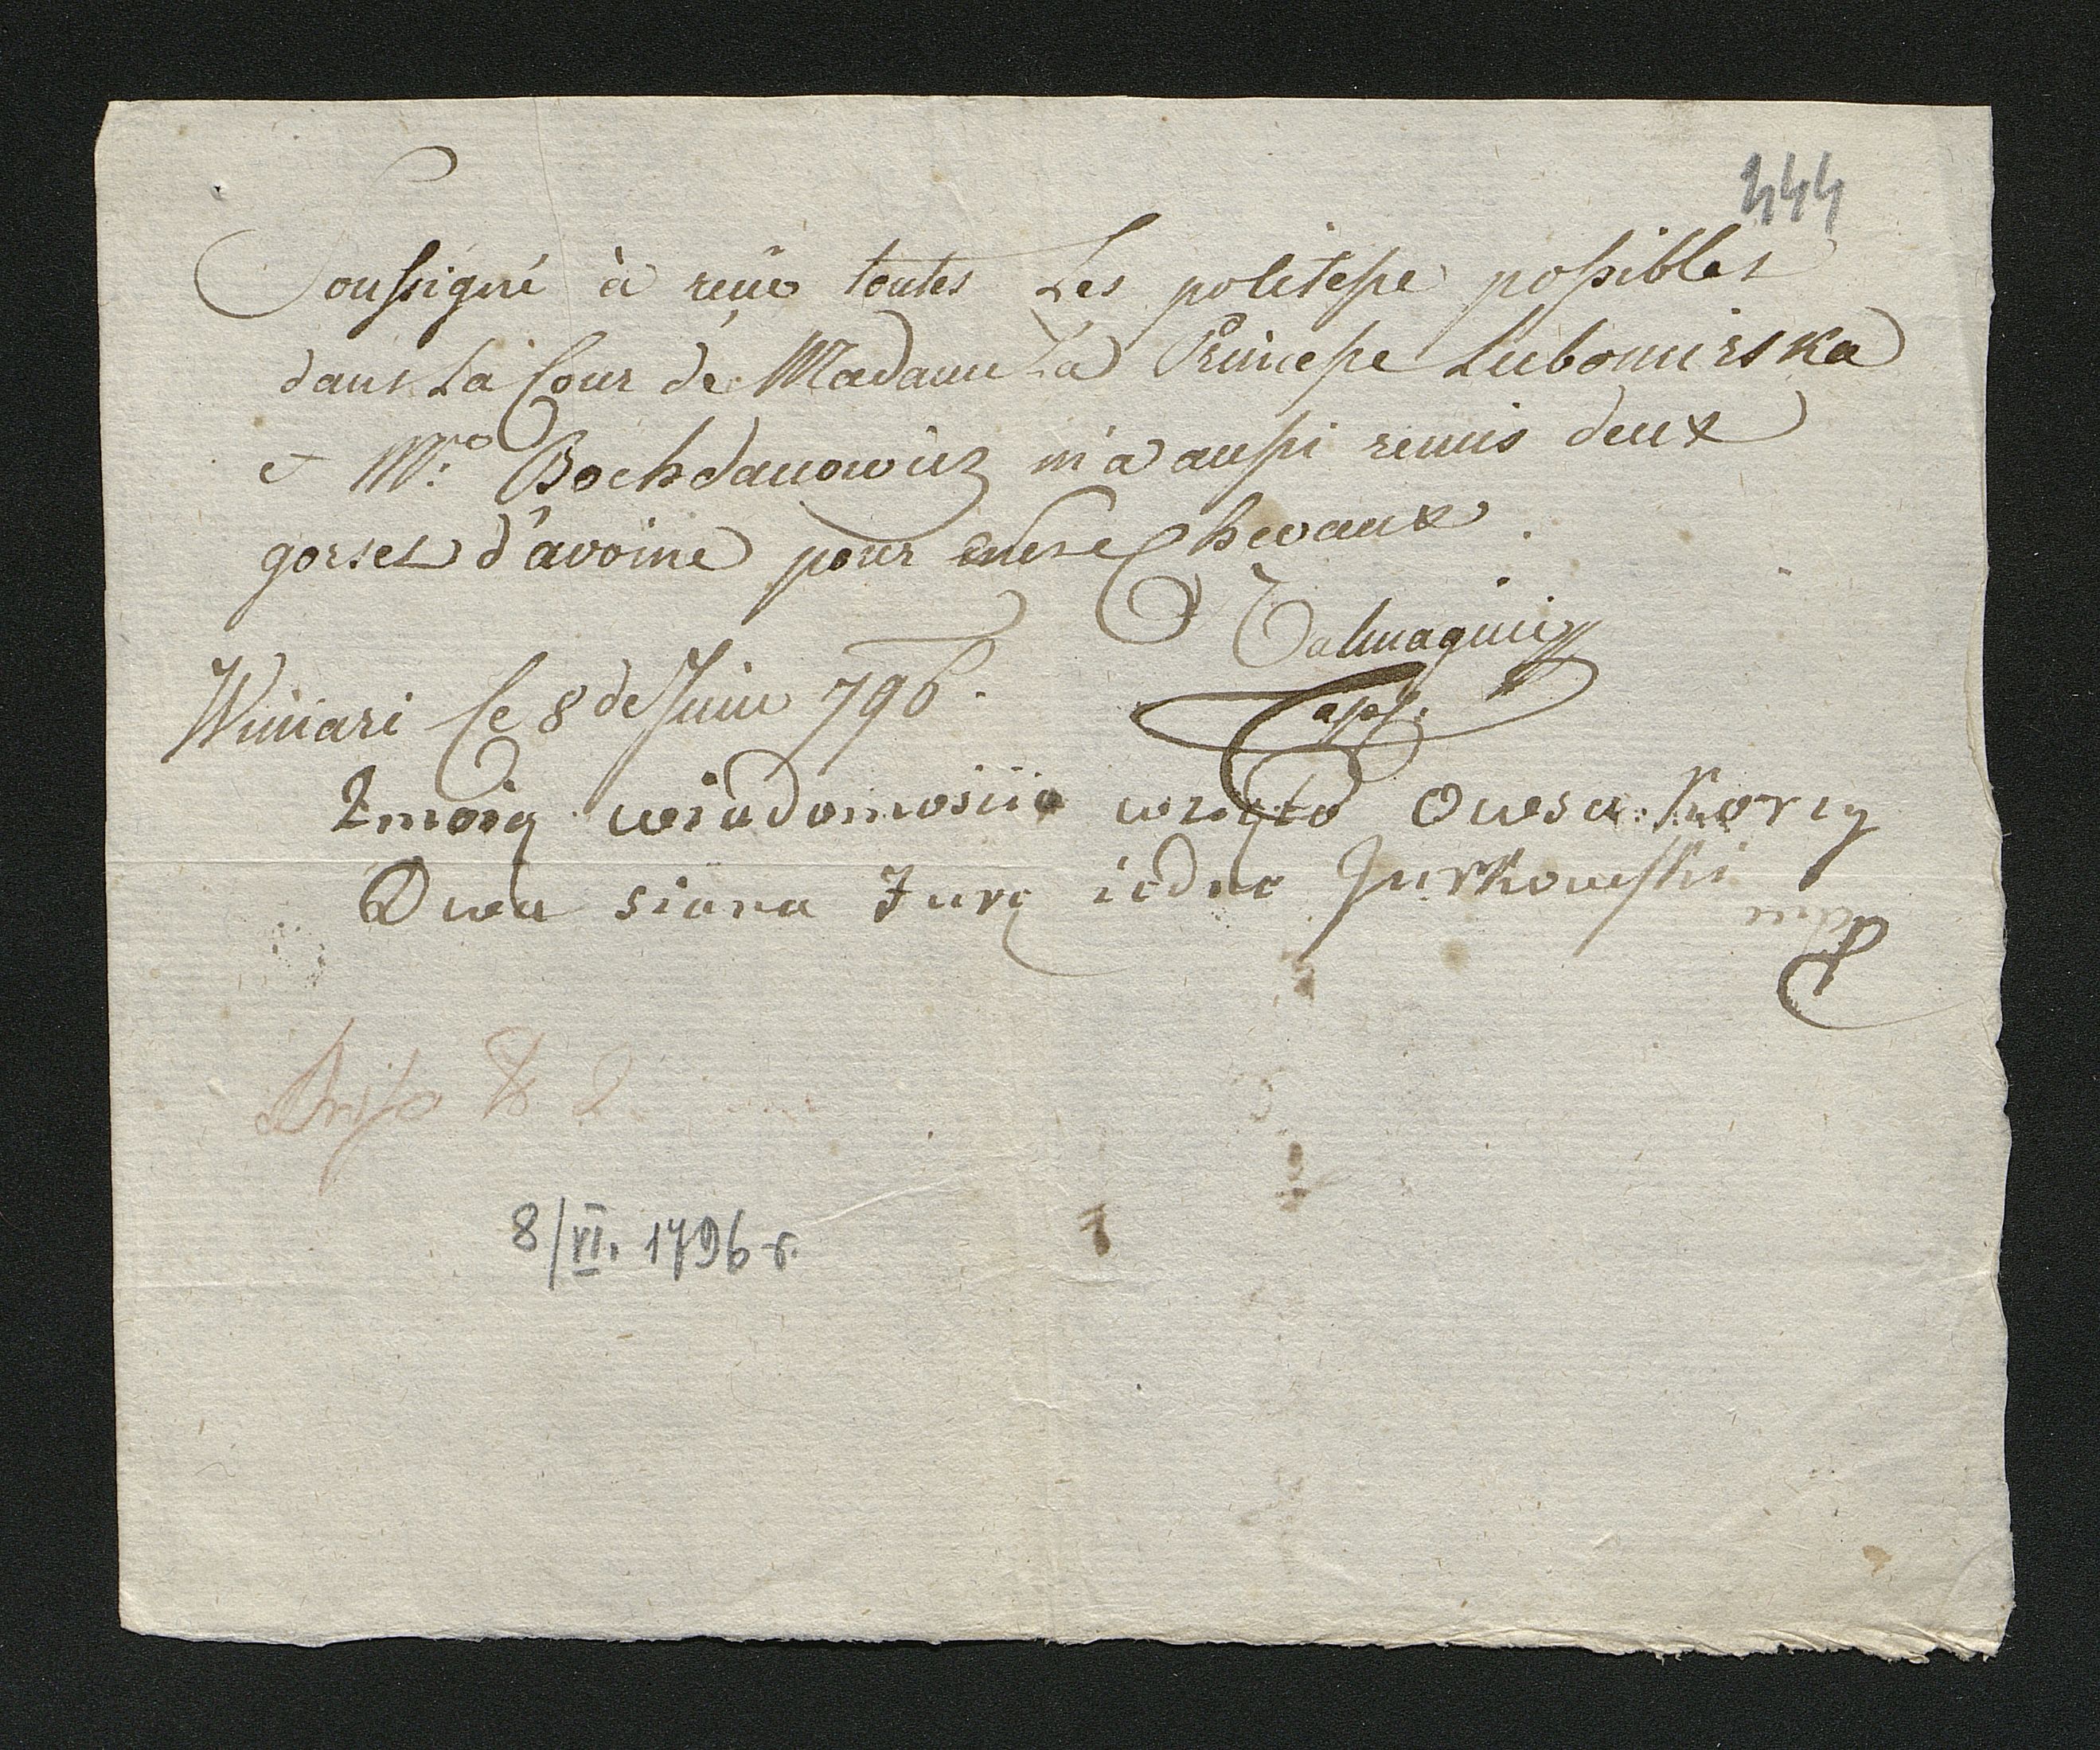 444
Soussigné à reüe toutes Les politesse possibles
dans La Cour dé Madame La Princesse Lubomirska
et Mr. Bochdanowicz m'a aussi remis deux
gorses d'avoine pour Chevaux.
Winiari le 8 de Juin 796.
Zmoią wiadomosiią wzięto Owsa Korcy
Dwa siana Furę iedne Jurkowski
8/VI. 1796 r.